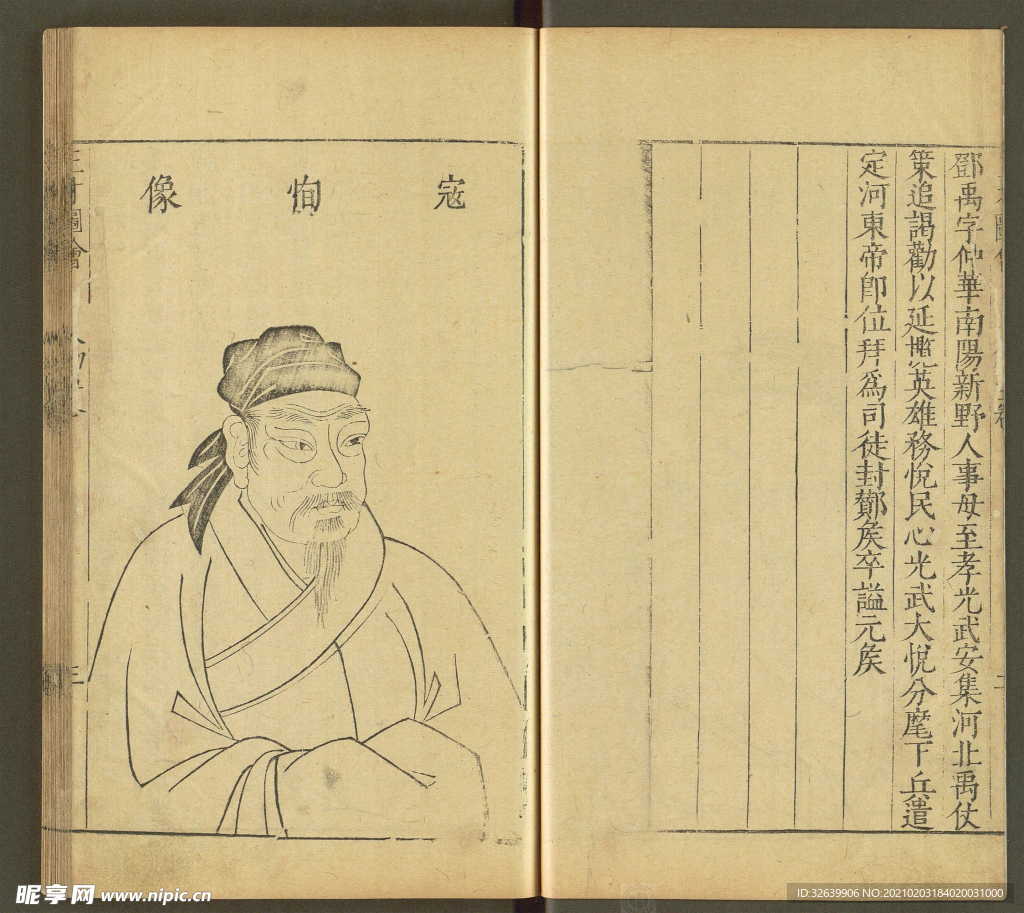 鄧禹字仲華南陽新野人事母至孝光武安集河北禹仗
策追謁勸以延攬英雄務悅民心光武大悅分麾下兵遣
定河東帝即位拜為司徒封酇矦卒謚元矦
寇恂像
三才圖會
人物
三
昵享网 www.nipic.cn
ID:32639906 NO:20210203184020031000